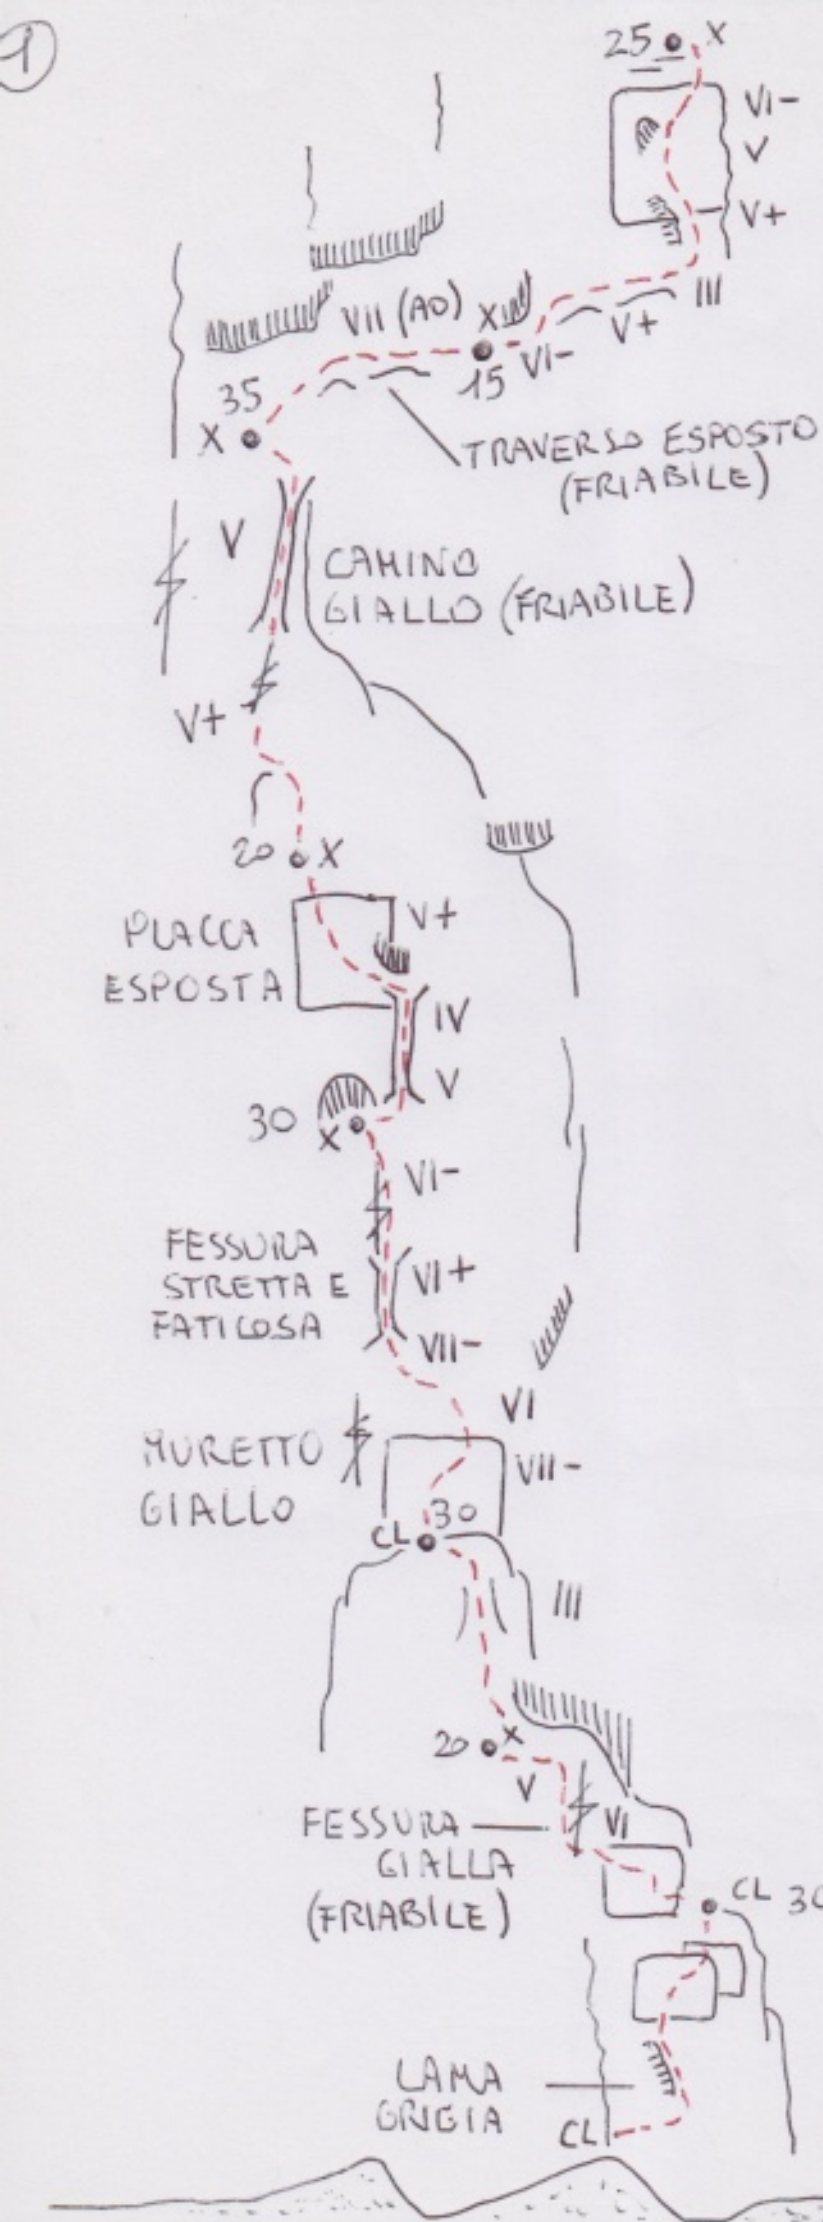 1
25 X
VI-
V
V+
III
VII (A0) X
V+
VI-
15
35
X
TRAVERSO ESPOSTO
(FRIABILE)
V
CAMINO
GIALLO (FRIABILE)
V+
20 X
PLACCA
ESPOSTA
V+
IV
V
30
X
VI-
FESSURA
STRETTA E
FATICOSA
VI+
VII-
VI
MURETTO
GIALLO
VII-
30
CL
III
X
20
V
FESSURA
GIALLA
(FRIABILE)
VI
CL 30
LAMA
GRIGIA
CL